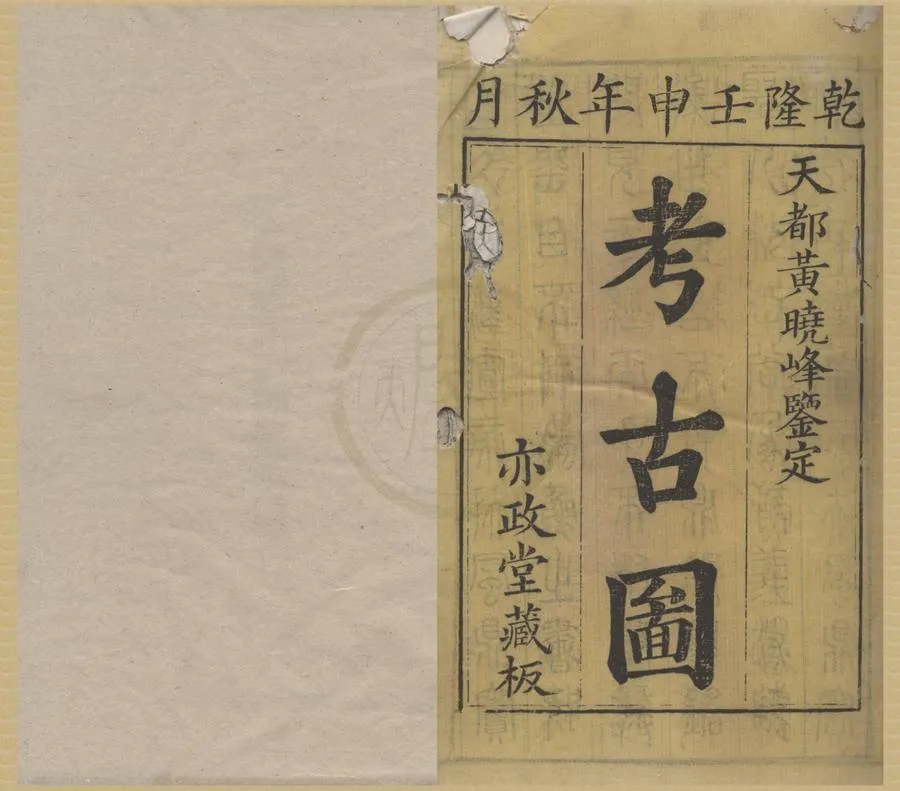 乾隆壬申年秋月
天都黃曉峰鑒定
考古圖
亦政堂藏板